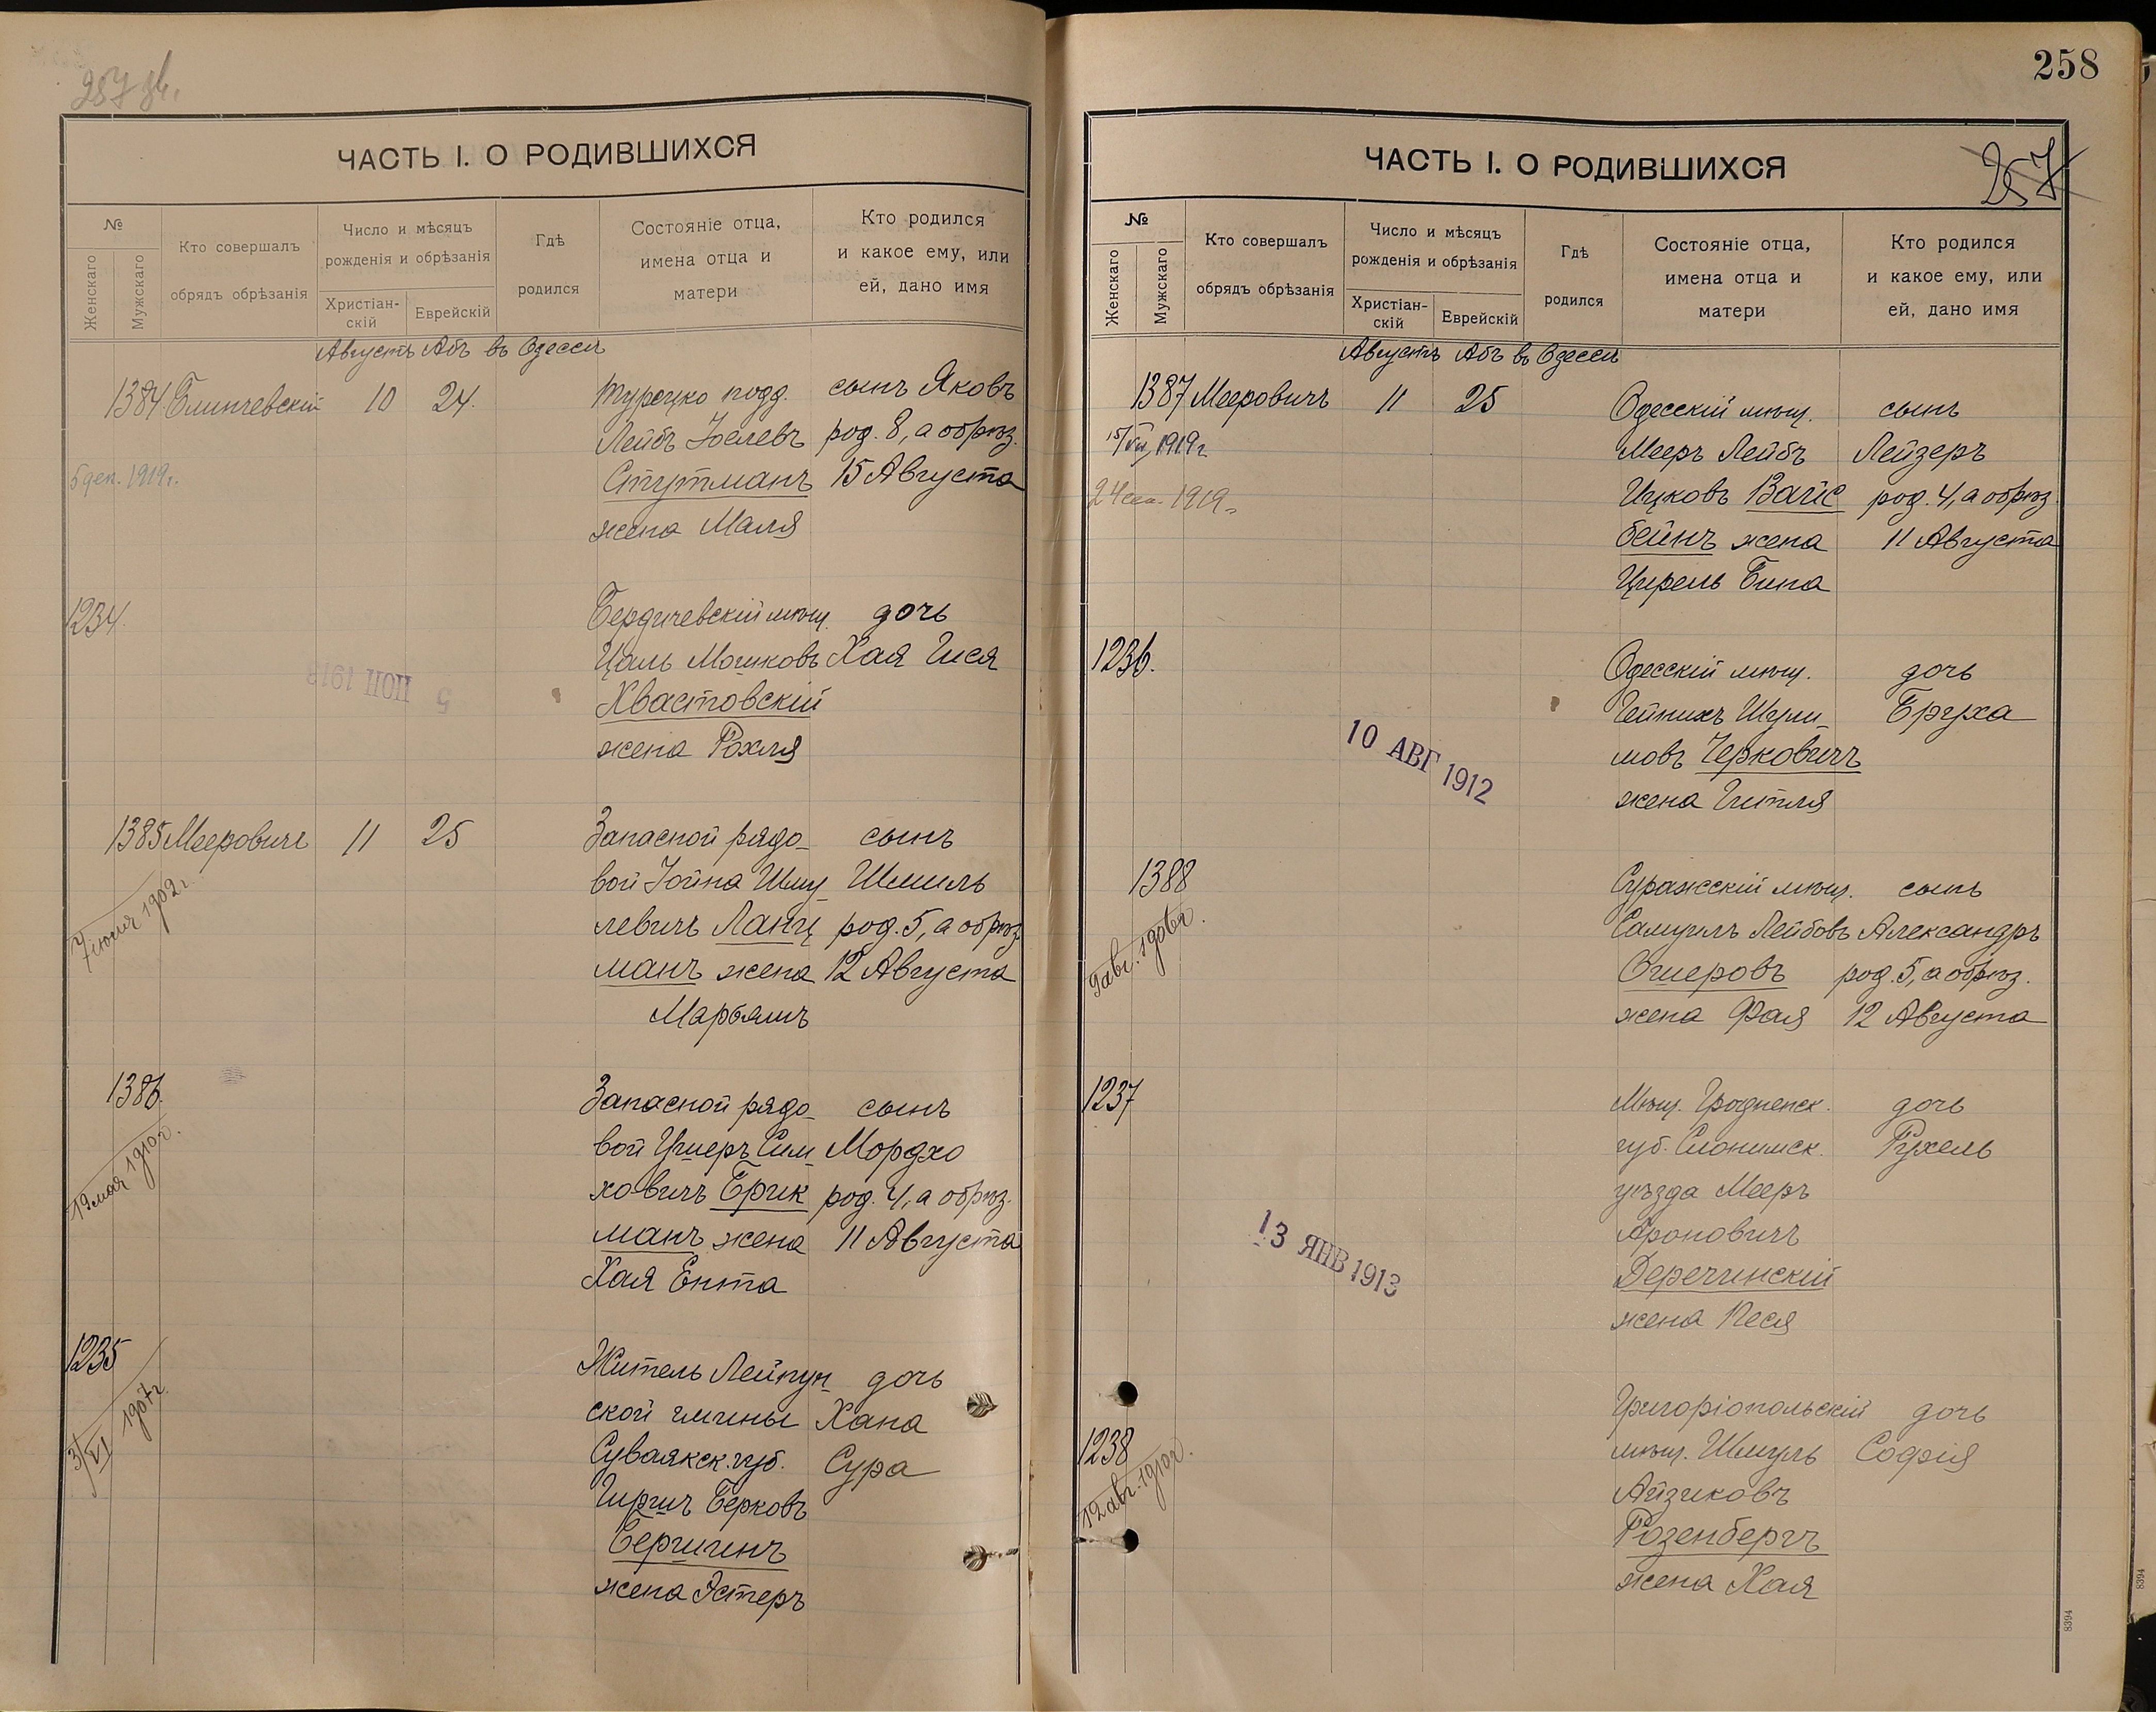 287 об.
ЧАСТЬ I. О РОДИВШИХСЯ
№
Женскаго
Мужскаго
Кто совершалъ
обрядъ обрѣзанія
Число и мѣсяцъ
рожденія и обрѣзанія
Христіан-
скій
Еврейскій
Гдѣ
родился
Состояніе отца,
имена отца и
матери
Кто родился
и какое ему, или
ей, дано имя
Августъ Абъ въ Одессѣ
1384 Блинчевскій 10 24. Турецко подд. сынъ Яковъ
Лейбъ Іоселевъ род. 8, а обрѣз.
5 дек. 1919 г. Стутманъ 15 Августа
жена Маля
1234. Бердичевскій мѣщ. дочь
Цаль Мошковъ Хая Гися
5 1913
Хвастовскій
жена Рохля
1385 Мееровичъ 11 25 Запасной рядо- сынъ
7 іюня 1902 г.
вой Іойна Шму- Шмиль
левичъ Ланц род. 5, а обрѣз
манъ жена 12 Августа
Марьямъ
1386. Запасной рядо- сынъ
19 мая 1910 г.
вой Ушеръ Сим- Мордхо
ховичъ Ерик род. 4, а обрѣз.
манъ жена 11 Августа
Хая Ента
1235 Житель Лейпун- дочь
3/VI 1907 г.
ской гмины Хана
Сувалкск. губ. Сура
Гиршъ Берковъ
Бершинъ
жена Эстеръ
258
257
ЧАСТЬ I. О РОДИВШИХСЯ
№
Женскаго
Мужскаго
Кто совершалъ
обрядъ обрѣзанія
Число и мѣсяцъ
рожденія и обрѣзанія
Христіан-
скій
Еврейскій
Гдѣ
родился
Состояніе отца,
имена отца и
матери
Кто родился
и какое ему, или
ей, дано имя
Августъ Абъ въ Одессѣ
1387 Мееровичъ 11 25 Одесскій мѣщ. сынъ
15/VII 1919 г. Мееръ Лейбъ Лейзеръ
24 1919 г. Ицковъ Вайс род. 4, а обрѣз.
бейнъ жена 11 Августа
Цирель Бина
1236. Одесскій мѣщ. дочь
Чейнихъ Шули- Бруха
10 АВГ 1912
мовъ Черковичъ
жена Гитля
1388 Суражскій мѣщ. сынъ
9 авг. 1906 г.
Самуилъ Лейбовъ Александръ
Ошеровъ род. 5, а обрѣз.
жена Фая 12 Августа
1237 Мѣщ. Гродненск. дочь
губ. Слонимск. Рухель
уѣзда Мееръ
Ароновичъ
13 ЯНВ 1913
Деречинскій
жена Песя
Григоріопольскій дочь
1238 мѣщ. Шмуль Софія
12 авг. 1910 г.
Айзиковъ
Розенбергъ
жена Хая
8394
8394